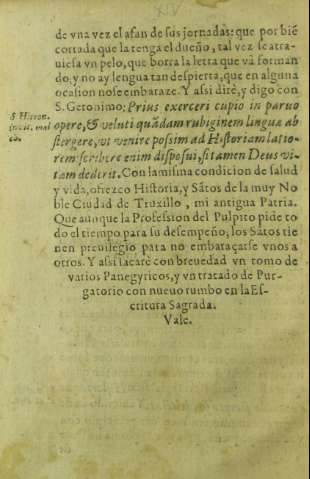 de vna vez el afan de sus jornadas: que por biē
cortada que la tenga el dueño, tal vez se atra-
uiesa vn pelo, que borra la letra que và forman
do; y no ay lengua tan despierta, que en alguna
ocasion no se embaraze. Y assi dirè, y digo con
S. Geronimo; Prius exerceri cupio in paruo
S Hieron.
in vit. mal
co.
opere, & veluti quādam rubiginem linguæ ab
stergere, vt venire possim ad Historiam latio-
rem scribere enim disposui, si tamen Deus vi-
tam dederit. Con la misma condicion de salud
y vida, ofrezco Historia, y Sātos de la muy No
ble Ciudad de Truxillo, mi antigua Patria.
Que aunque la Profession del Pulpito pide to
do el tiempo para su desempeño; los Sātos tie
nen preuilegio para no embaraçarse vnos a
otros. Y assi sacarè con breuedad vn tomo de
varios Panegyricos, y vn tratado de Pur-
gatorio con nueuo rumbo en la Es-
critura Sagrada.
Vale.